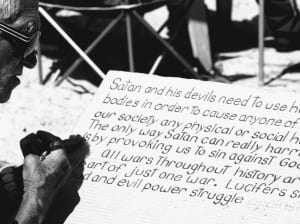 Satan and his devils need to use h
bodies in order to cause anyone of
our society any physical or social h
The only way Satan can really harm
is by provoking us to sin against Go
all wars throughout history ar
art of just one war. Lucifers s
d and evil power struggle